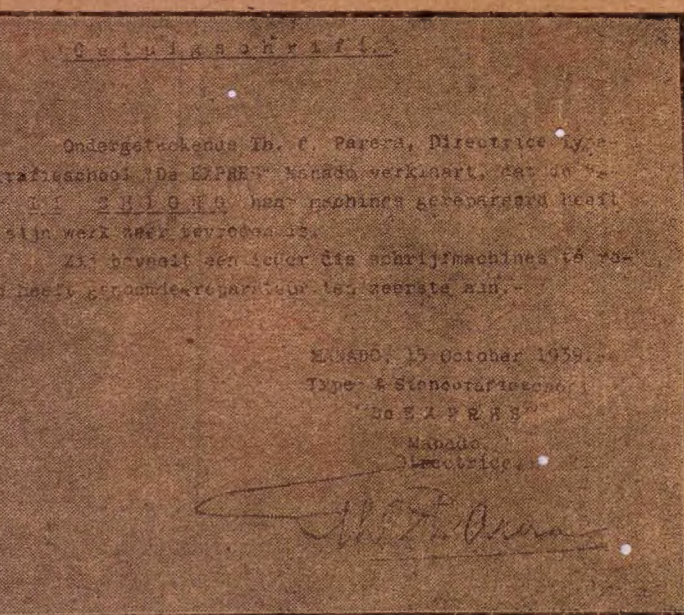 Getuigschrift.
Ondergeteekende Th. P. Parera, Directrice Type-
rafieschool "De EXPRES" Manado verklaart, dat de
LI SHIONG haar machines gerepareerd heeft
zijn werk zeer tevreden is.
Zij beveelt een ieder die schrijfmachines te re-
heeft genoemde reparateur ten zeerste aan.-
MANADO, 15 October 1939.-
Type- & Stenografieschool
"De EXPRES"
Manado.
Directrice,